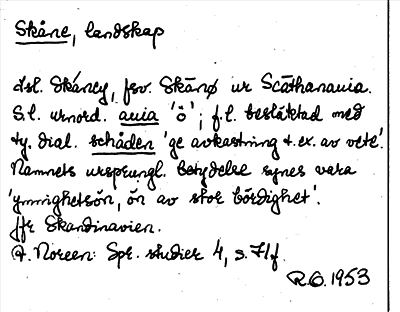 Skåne, landskap
isl. Skáney, fsv. Skānø ur Scāthanauia.
S.l. urnord. auia 'ö'; f.l. besläktad med
ty. dial. schåden 'ge avkastning t.ex. av vete'.
Namnets ursprungl. betydelse synes vara
'ymnighetsön, ön av stor bördighet'.
Jfr Skandinavien.
A. Noreen: Spr. studier 4, s. 71f.
R.O. 1953